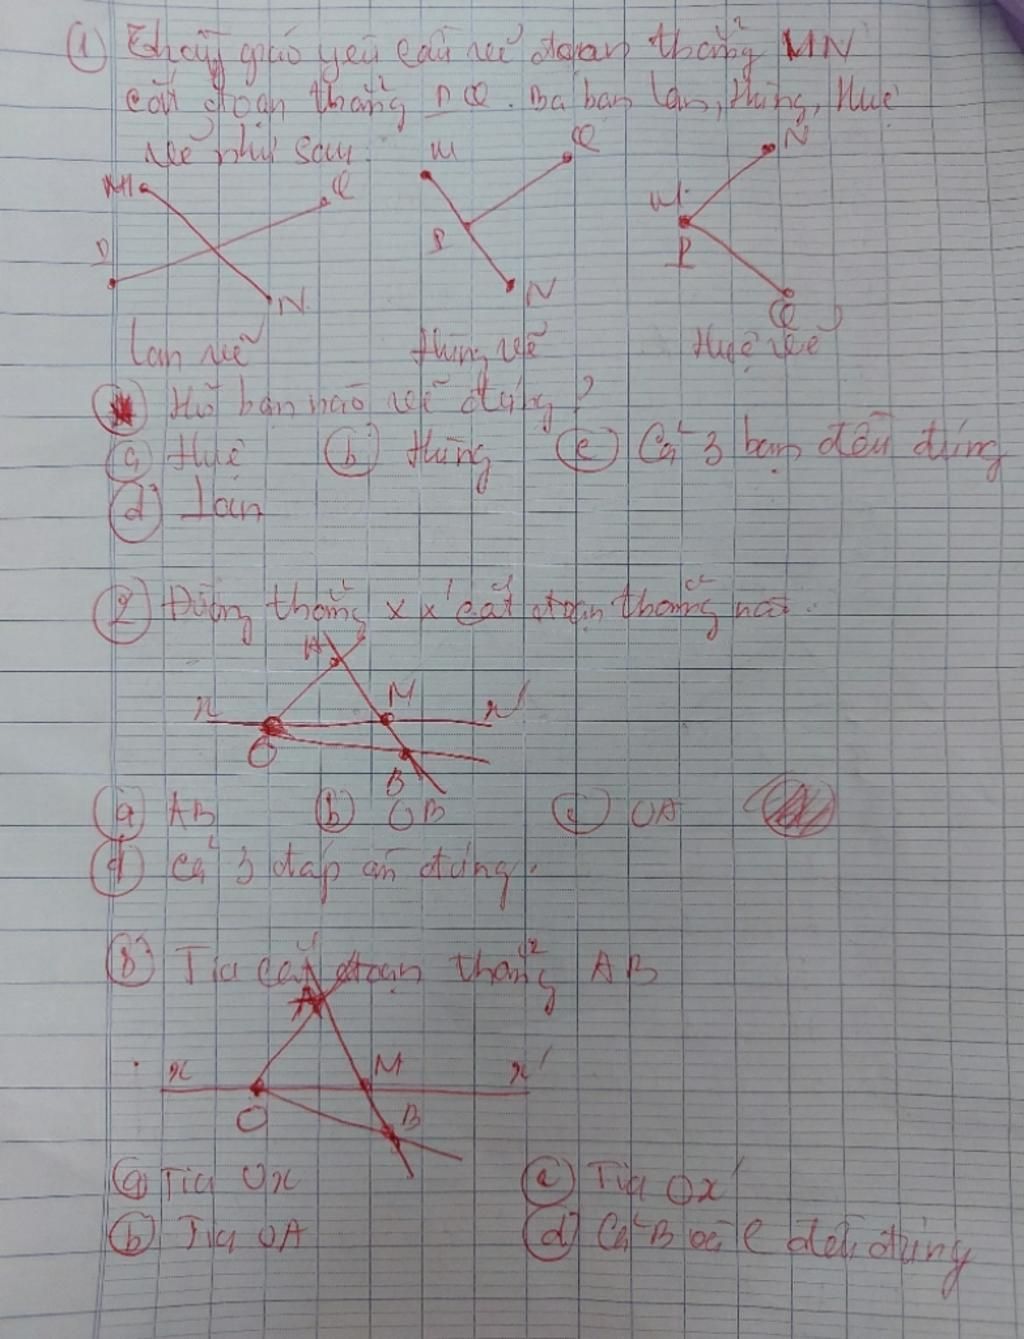 ① Thầy giáo yêu cầu vẽ đoạn thẳng MN
cắt đoạn thẳng PQ. Ba bạn Lan, Hùng, Huệ
vẽ như sau:
M Q M Q N
P P M
P
N N Q
Lan vẽ Hùng vẽ Huệ vẽ
Hỏi bạn nào vẽ đúng?
ⓐ Huệ ⓑ Hùng ⓒ Cả 3 bạn đều đúng
ⓓ Lan
② Đường thẳng xx' cắt đoạn thẳng nào.
A
x M x'
O
B
ⓐ AB ⓑ OB ⓒ OA
ⓓ Cả 3 đáp án đúng.
③ Tia cắt đoạn thẳng AB
A
x M x'
O B
ⓐ Tia Ox ⓒ Tia Ox'
ⓑ Tia OA ⓓ Cả B và C đều đúng